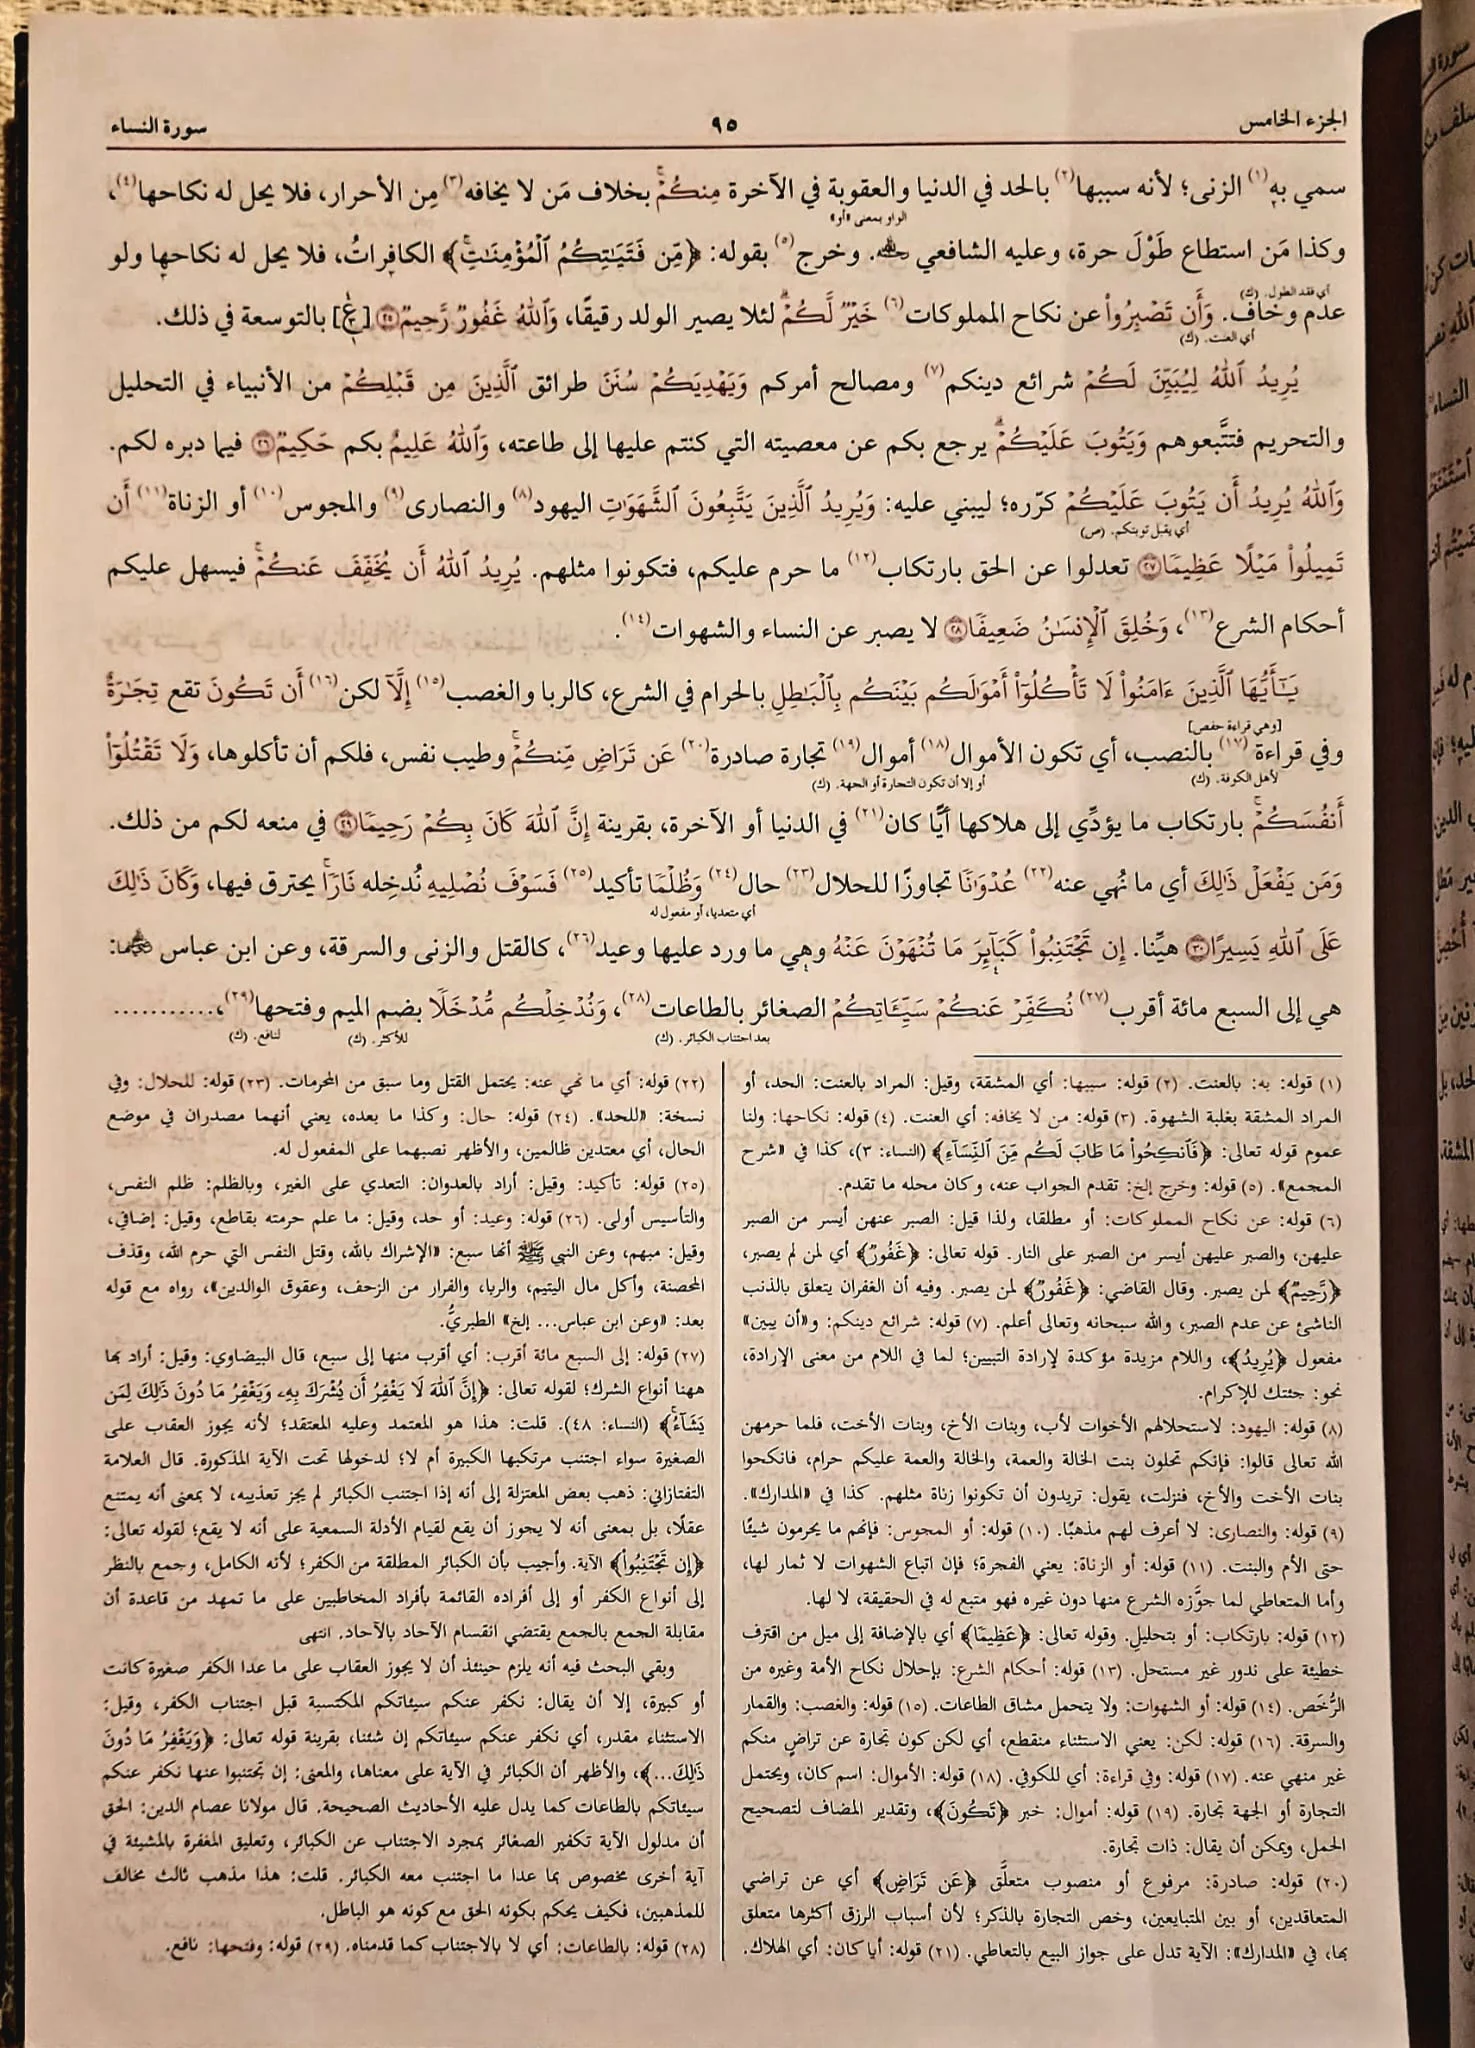 الجزء الخامس ٩٥ سورة النساء
سمي به(١) الزنى؛ لأنه سببها(٢) بالحد في الدنيا والعقوبة في الآخرة مِنكُمْۚ بخلاف مَن لا يخافه(٣) مِن الأحرار، فلا يحل له نكاحها(٤)،
الواو بمعنى «أو»
وكذا مَن استطاع طَوْلَ حرة، وعليه الشافعي رحمه الله. وخرج(٥) بقوله: ﴿مِّن فَتَيَٰتِكُمُ ٱلْمُؤْمِنَٰتِۚ﴾ الكافراتُ، فلا يحل له نكاحها ولو
أي فقد الطول. (ك)
عدم وخاف. وَأَن تَصْبِرُوا۟ عن نكاح المملوكات(٦) خَيْرٌ لَّكُمْۗ لئلا يصير الولد رقيقًا، وَٱللَّهُ غَفُورٌ رَّحِيمٌ۝٢٥ [ع] بالتوسعة في ذلك.
أي العنت. (ك)
يُرِيدُ ٱللَّهُ لِيُبَيِّنَ لَكُمْ شرائع دينكم(٧) ومصالح أمركم وَيَهْدِيَكُمْ سُنَنَ طرائق ٱلَّذِينَ مِن قَبْلِكُمْ من الأنبياء في التحليل
والتحريم فتتَّبعوهم وَيَتُوبَ عَلَيْكُمْۗ يرجع بكم عن معصيته التي كنتم عليها إلى طاعته، وَٱللَّهُ عَلِيمٌ بكم حَكِيمٌ۝٢٦ فيما دبره لكم.
وَٱللَّهُ يُرِيدُ أَن يَتُوبَ عَلَيْكُمْ كرّره؛ ليبني عليه: وَيُرِيدُ ٱلَّذِينَ يَتَّبِعُونَ ٱلشَّهَوَٰتِ اليهود(٨) والنصارى(٩) والمجوس(١٠) أو الزناة(١١) أَن
أي يقبل توبتكم. (ص)
تَمِيلُوا۟ مَيْلًا عَظِيمًا۝٢٧ تعدلوا عن الحق بارتكاب(١٢) ما حرم عليكم، فتكونوا مثلهم. يُرِيدُ ٱللَّهُ أَن يُخَفِّفَ عَنكُمْۚ فيسهل عليكم
أحكام الشرع(١٣)، وَخُلِقَ ٱلْإِنسَٰنُ ضَعِيفًا۝٢٨ لا يصبر عن النساء والشهوات(١٤).
يَٰٓأَيُّهَا ٱلَّذِينَ ءَامَنُوا۟ لَا تَأْكُلُوٓا۟ أَمْوَٰلَكُم بَيْنَكُم بِٱلْبَٰطِلِ بالحرام في الشرع، كالربا والغصب(١٥) إِلَّآ لكن(١٦) أَن تَكُونَ تقع تِجَٰرَةٌ
[وهي قراءة حفص]
وفي قراءة(١٧) بالنصب، أي تكون الأموال(١٨) أموال(١٩) تجارة صادرة(٢٠) عَن تَرَاضٍ مِّنكُمْۚ وطيب نفس، فلكم أن تأكلوها، وَلَا تَقْتُلُوٓا۟
لأهل الكوفة. (ك) أو إلا أن تكون التجارة أو الجهة. (ك)
أَنفُسَكُمْۚ بارتكاب ما يؤدِّي إلى هلاكها أيًّا كان(٢١) في الدنيا أو الآخرة، بقرينة إِنَّ ٱللَّهَ كَانَ بِكُمْ رَحِيمًا۝٢٩ في منعه لكم من ذلك.
وَمَن يَفْعَلْ ذَٰلِكَ أي ما نُهي عنه(٢٢) عُدْوَٰنًا تجاوزًا للحلال(٢٣) حال(٢٤) وَظُلْمًا تأكيد(٢٥) فَسَوْفَ نُصْلِيهِ نُدخِله نَارًاۚ يحترق فيها، وَكَانَ ذَٰلِكَ
أي متعديا، أو مفعول له
عَلَى ٱللَّهِ يَسِيرًا۝٣٠ هيِّنا. إِن تَجْتَنِبُوا۟ كَبَآئِرَ مَا تُنْهَوْنَ عَنْهُ وهي ما ورد عليها وعيد(٢٦)، كالقتل والزنى والسرقة، وعن ابن عباس رضي الله عنهما:
هي إلى السبع مائة أقرب(٢٧) نُكَفِّرْ عَنكُمْ سَيِّـَٔاتِكُمْ الصغائر بالطاعات(٢٨)، وَنُدْخِلْكُم مُّدْخَلًا بضم الميم وفتحها(٢٩)، ...........
بعد اجتناب الكبائر. (ك) للأكثر. (ك) لنافع. (ك)
(١) قوله: به: بالعنت. (٢) قوله: سببها: أي المشقة، وقيل: المراد بالعنت: الحد، أو
المراد المشقة بغلبة الشهوة. (٣) قوله: من لا يخافه: أي العنت. (٤) قوله: نكاحها: ولنا
عموم قوله تعالى: ﴿فَٱنكِحُوا۟ مَا طَابَ لَكُم مِّنَ ٱلنِّسَآءِ﴾ (النساء: ٣)، كذا في «شرح
المجمع». (٥) قوله: وخرج إلخ: تقدم الجواب عنه، وكان محله ما تقدم.
(٦) قوله: عن نكاح المملوكات: أو مطلقا، ولذا قيل: الصبر عنهن أيسر من الصبر
عليهن، والصبر عليهن أيسر من الصبر على النار. قوله تعالى: ﴿غَفُورٌ﴾ أي لمن لم يصبر،
﴿رَّحِيمٌ﴾ لمن يصبر. وقال القاضي: ﴿غَفُورٌ﴾ لمن يصبر. وفيه أن الغفران يتعلق بالذنب
الناشئ عن عدم الصبر، والله سبحانه وتعالى أعلم. (٧) قوله: شرائع دينكم: و«أن يبين»
مفعول ﴿يُرِيدُ﴾، واللام مزيدة مؤكدة لإرادة التبيين؛ لما في اللام من معنى الإرادة،
نحو: جئتك للإكرام.
(٨) قوله: اليهود: لاستحلالهم الأخوات لأب، وبنات الأخ، وبنات الأخت، فلما حرمهن
الله تعالى قالوا: فإنكم تحلون بنت الخالة والعمة، والخالة والعمة عليكم حرام، فانكحوا
بنات الأخت والأخ، فنزلت، يقول: تريدون أن تكونوا زناة مثلهم. كذا في «المدارك».
(٩) قوله: والنصارى: لا أعرف لهم مذهبًا. (١٠) قوله: أو المجوس: فإنهم ما يحرمون شيئًا
حتى الأم والبنت. (١١) قوله: أو الزناة: يعني الفجرة؛ فإن اتباع الشهوات لا ثمار لها،
وأما المتعاطي لما جوَّزه الشرع منها دون غيره فهو متبع له في الحقيقة، لا لها.
(١٢) قوله: بارتكاب: أو بتحليل. وقوله تعالى: ﴿عَظِيمًا﴾ أي بالإضافة إلى ميل من اقترف
خطيئة على ندور غير مستحل. (١٣) قوله: أحكام الشرع: بإحلال نكاح الأمة وغيره من
الرُّخَص. (١٤) قوله: أو الشهوات: ولا يتحمل مشاق الطاعات. (١٥) قوله: والغصب: والقمار
والسرقة. (١٦) قوله: لكن: يعني الاستثناء منقطع، أي لكن كون تجارة عن تراضٍ منكم
غير منهي عنه. (١٧) قوله: وفي قراءة: أي للكوفي. (١٨) قوله: الأموال: اسم كان، ويحتمل
التجارة أو الجهة تجارة. (١٩) قوله: أموال: خبر ﴿تَكُونَ﴾، وتقدير المضاف لتصحيح
الحمل، ويمكن أن يقال: ذات تجارة.
(٢٠) قوله: صادرة: مرفوع أو منصوب متعلَّق ﴿عَن تَرَاضٍ﴾ أي عن تراضي
المتعاقدين، أو بين المتبايعين، وخص التجارة بالذكر؛ لأن أسباب الرزق أكثرها متعلق
بها، في «المدارك»: الآية تدل على جواز البيع بالتعاطي. (٢١) قوله: أيا كان: أي الهلاك.
(٢٢) قوله: أي ما نهي عنه: يحتمل القتل وما سبق من المحرمات. (٢٣) قوله: للحلال: وفي
نسخة: «للحد». (٢٤) قوله: حال: وكذا ما بعده، يعني أنهما مصدران في موضع
الحال، أي معتدين ظالمين، والأظهر نصبهما على المفعول له.
(٢٥) قوله: تأكيد: وقيل: أراد بالعدوان: التعدي على الغير، وبالظلم: ظلم النفس،
والتأسيس أولى. (٢٦) قوله: وعيد: أو حد، وقيل: ما علم حرمته بقاطع، وقيل: إضافي،
وقيل: مبهم، وعن النبي ﷺ أنها سبع: «الإشراك بالله، وقتل النفس التي حرم الله، وقذف
المحصنة، وأكل مال اليتيم، والربا، والفرار من الزحف، وعقوق الوالدين»، رواه مع قوله
بعد: «وعن ابن عباس... إلخ» الطبريُّ.
(٢٧) قوله: إلى السبع مائة أقرب: أي أقرب منها إلى سبع، قال البيضاوي: وقيل: أراد بها
ههنا أنواع الشرك؛ لقوله تعالى: ﴿إِنَّ ٱللَّهَ لَا يَغْفِرُ أَن يُشْرَكَ بِهِۦ وَيَغْفِرُ مَا دُونَ ذَٰلِكَ لِمَن
يَشَآءُۚ﴾ (النساء: ٤٨). قلت: هذا هو المعتمد وعليه المعتقد؛ لأنه يجوز العقاب على
الصغيرة سواء اجتنب مرتكبها الكبيرة أم لا؛ لدخولها تحت الآية المذكورة. قال العلامة
التفتازاني: ذهب بعض المعتزلة إلى أنه إذا اجتنب الكبائر لم يجز تعذيبه، لا بمعنى أنه يمتنع
عقلًا، بل بمعنى أنه لا يجوز أن يقع لقيام الأدلة السمعية على أنه لا يقع؛ لقوله تعالى:
﴿إِن تَجْتَنِبُوا۟﴾ الآية. وأجيب بأن الكبائر المطلقة من الكفر؛ لأنه الكامل، وجمع بالنظر
إلى أنواع الكفر أو إلى أفراده القائمة بأفراد المخاطبين على ما تمهد من قاعدة أن
مقابلة الجمع بالجمع يقتضي انقسام الآحاد بالآحاد. انتهى
وبقي البحث فيه أنه يلزم حينئذ أن لا يجوز العقاب على ما عدا الكفر صغيرة كانت
أو كبيرة، إلا أن يقال: نكفر عنكم سيئاتكم المكتسبة قبل اجتناب الكفر، وقيل:
الاستثناء مقدر، أي نكفر عنكم سيئاتكم إن شئنا، بقرينة قوله تعالى: ﴿وَيَغْفِرُ مَا دُونَ
ذَٰلِكَ...﴾، والأظهر أن الكبائر في الآية على معناها، والمعنى: إن تجتنبوا عنها نكفر عنكم
سيئاتكم بالطاعات كما يدل عليه الأحاديث الصحيحة. قال مولانا عصام الدين: الحق
أن مدلول الآية تكفير الصغائر بمجرد الاجتناب عن الكبائر، وتعليق المغفرة بالمشيئة في
آية أخرى مخصوص بما عدا ما اجتنب معه الكبائر. قلت: هذا مذهب ثالث مخالف
للمذهبين، فكيف يحكم بكونه الحق مع كونه هو الباطل.
(٢٨) قوله: بالطاعات: أي لا بالاجتناب كما قدمناه. (٢٩) قوله: وفتحها: نافع.